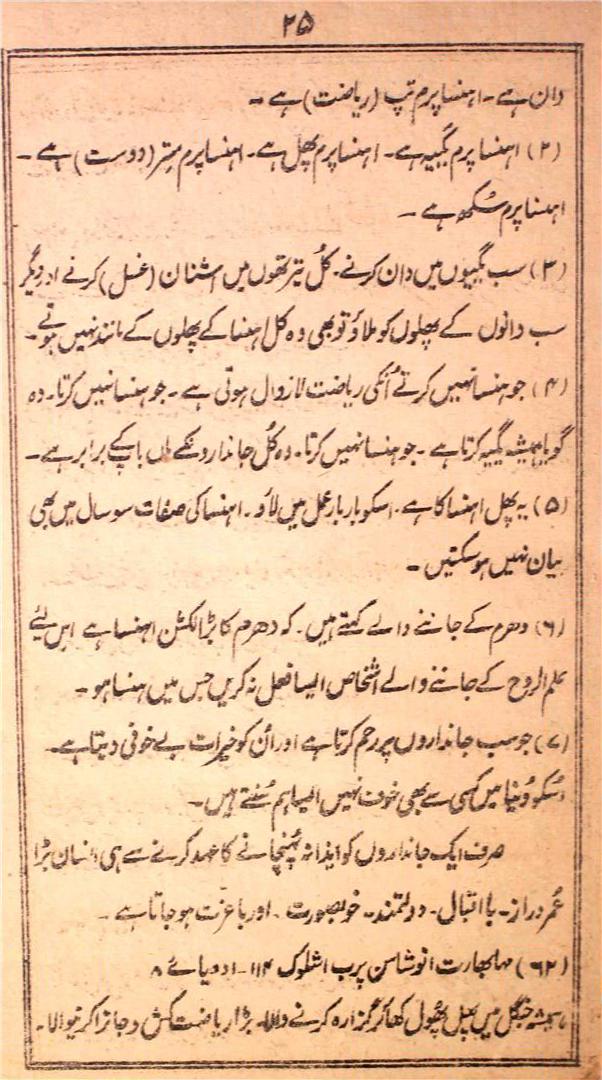 ۲۵
دان ہے۔ اہنسا پرم تپ (ریاضت) ہے۔
(۲) اہنسا پرم یگیہ ہے۔ اہنسا پرم پھل ہے۔ اہنسا پرم مِتر (دوست) ہے۔
اہنسا پرم سُکھ ہے۔
(۳) سب یگیوں میں دان کرنے۔ کُل تیرتھوں میں اشنان (غسل) کرنے اور دیگر
سب دانوں کے پھلوں کو ملاؤ تو بھی وہ کل اہنسا کے پھلوں کے مانند نہیں ہوتے۔
(۴) جو ہنسا نہیں کرتے اُنکی ریاضت لازوال ہوتی ہے۔ جو ہنسا نہیں کرتا۔ وہ
گویا ہمیشہ یگیہ کرتا ہے۔ جو ہنسا نہیں کرتا۔ وہ کُل جانداروں کے ماں باپ کے برابر ہے۔
(۵) یہ پھل اہنسا کا ہے۔ اسکو بار بار عمل میں لاؤ۔ اہنسا کی صفات سو سال میں بھی
بیان نہیں ہو سکتیں۔
(۶) دھرم کے جاننے والے کہتے ہیں۔ کہ دھرم کا بڑا لکشن اہنسا ہے اس لئے
علم الروح کے جاننے والے اشخاص ایسا فعل نہ کریں جس میں ہنسا ہو۔
(۷) جو سب جانداروں پر رحم کرتا ہے اور اُن کو خیرات بے خوفی دیتا ہے۔
اُسکو دُنیا میں کسی سے بھی خوف نہیں ایسا ہم سُنتے ہیں۔
صرف ایک جانداروں کو ایذا نہ پہنچانے کا عہد کرنے سے ہی انسان بڑا
عُمر دراز۔ با اقبال۔ دولتمند۔ خوبصورت۔ اور باعزت ہو جاتا ہے۔
(۶۲) مہابھارت انوشاسن پرب اشلوک ۱۱۴۔ ادویائے ۸
ہمیشہ جنگل میں پھل پھُول کھا کر گزارہ کرنے والا۔ بڑا ریاضت کش و جاترا کرنیوالا۔